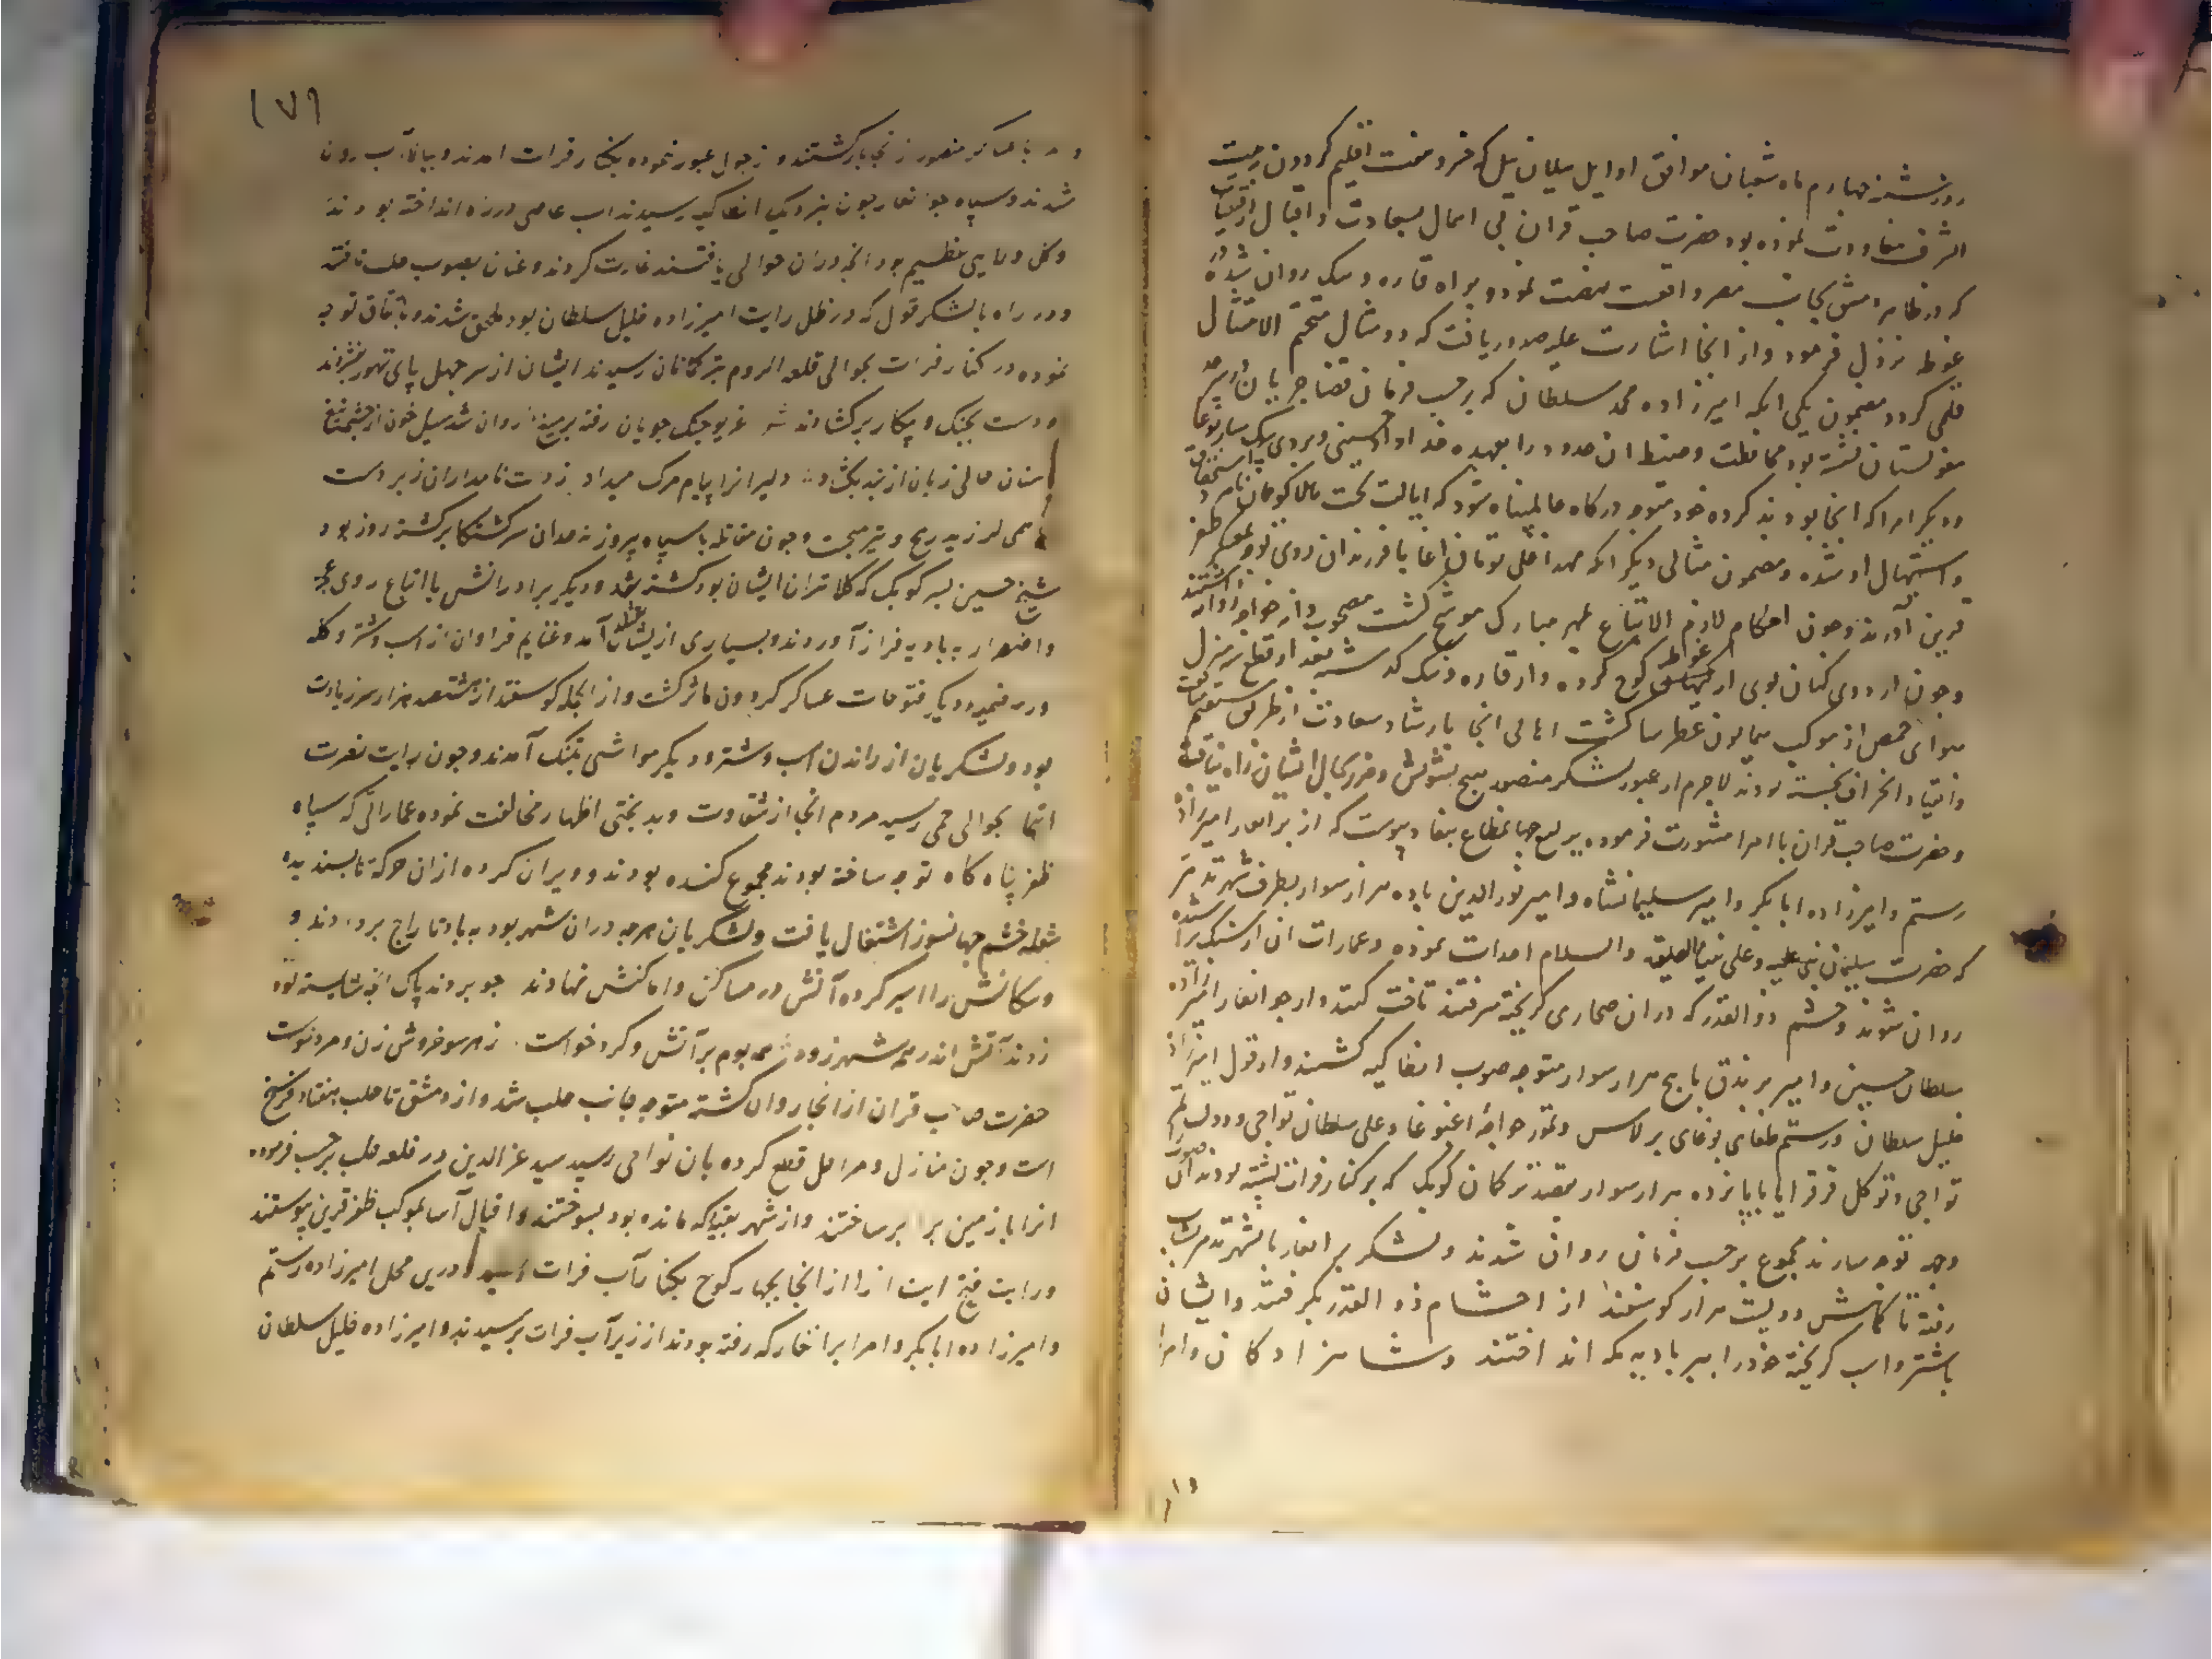 روز شنبه چهارم ماه شعبان موافق اوایل ییلان ییل که خسرو هفت اقلیم کردون
الشرف معاودت نموده بود حضرت صاحب قران فی اسال بسعادت و اقبال از
که در ظاهر دمشق بجانب مصر واقعست نهضت نمود و براه قاره و نبک روان شده در
غوطه نزول فرمود و از انجا اشارت علیه صدور یافت که دو مثال متحتم الامتثال
قلمی کردد مضمون یکی انکه امیرزاده محمد سلطان که برحسب فرمان قضا جریان در سرحد
مغولستان نشسته بود محافظت و ضبط ان حدود را بعهده خداداد حسینی و بردی بیک سار بوغا
و دیکر امرا که انجا بودند کرده خود متوجه درکاه عالمپناه شود که ایالت تخت هلاکوخان نامزد
و استیهال او شده و مضمون مثالی دیکر انکه مهد اعلی تومان اغا با فرزندان روی توجه بمعسکر ظفر
قرین آورند و چون احکام لازم الاتباع بمهر مبارک موشح کشت مصحوب
و چون اردوی کیهان پوی از غوطه کوچ کرده و از قاره و نبک کذشته بعد از قطع سه منزل
هوای حمص از موکب همایون عطرسا کشت اهالی انجا بارشاد سعادت از طریق مستقیم
و انقیاد انحراف نجسته بودند لاجرم از عبور لشکر منصور هیچ تشویش و ضرر بحال ایشان راه نیافت
و حضرت صاحب قران با امرا مشورت فرموده یرلیغ جهانمطاع بنفاذ پیوست که از برانغار امیرزاده
رستم و امیرزاده ابابکر و امیر سلیمانشاه و امیر نورالدین با ده هزار سوار بطرف شهر تدمر
که حضرت سلیمان نبی علیه و علی نبینا الصلوة والسلام احداث نموده و عمارات ان از سنک
روان شوند و حشم ذوالقدر که دران صحاری کریخته میرفتند تاخت کنند و از جوانغار امیرزاده
سلطان حسین و امیر برندق با پنج هزار سوار متوجه صوب انطاکیه کشتند و از قول امیرزاده
خلیل سلطان و رستم طغای بوغای برلاس و تمور خواجه اغبوغا و علی سلطان تواجی و دولت تمور
تواجی و توکل قرقرا با پانزده هزار سوار بقصد ترکمان کوبک که برکنار فرات نشسته بودند ان صوب
وجهه توجه سازند مجموع برحسب فرمان روان شدند و لشکر برانغار با شهر تدمر شتاب
رفته تا کماپیش دویست هزار کوسفند از احشام ذو القدر بکرفتند و ایشان
باشتر و اسب کریخته خود را ببر بادیه مکه انداختند و شاهزادکان و امرا
۱۷۱
و با عساکر منصور از انجا بازکشتند و زجوال عبور نموده بکنار فرات امدند و ببالا آب روان
شدند و سپاه جوانغار چون بنزدیک انطاکیه رسیدند اب عاصی در رزه انداخته بودند
و کل و لایی عظیم بود انچه دران حوالی یافتند غارت کردند و عنان بصوب حلب تافته
و در راه بالشکر قول که در ظل رایت امیرزاده خلیل سلطان بود ملحق شدند و باتفاق توجه
نموده در کنار فرات بحوالی قلعه الروم بترکمانان رسیدند ایشان از سر جهل پای تهور بفشردند
و دست بجنک و پیکار برکشادند غریو جنک جویان رفته بر میغ روان شد سیل خون از چشمه تیغ
سنان حالی زبان از بند بکشاد دلیرانرا پیام مرک میداد ز دست نامداران زبردست
همی لرزید رمح و تیر میجست و چون مقابله با سپاه پیروز نه حد ان سرکشتکان برکشته روز بود
شیخ حسین پسر کوبک که کلانتر ان ایشان بود کشته شد و دیکر برادرانش با اتباع روی عجز
و اضطرار به بادیه فراز آوردند و بسیاری ازیشان بقتل آمد و غنایم فراوان از اسب و شتر و کله
و رمه ضمیمه دیکر فتوحات عساکر کردون ماثر کشت و از انجمله کوسفند از هشتصد هزار سر زیادت
بود و لشکریان از راندن اسب و شتر و دیکر مواشی بتنک آمدند و چون رایت نصرت
انتما بحوالی حمی رسید مردم انجا از شقاوت و بدبختی اظهار مخالفت نموده عماراتی که سپاه
ظفر پناه کاه توجه ساخته بودند مجموع کنده بودند و ویران کرده ازان حرکة ناپسندیده
شعله خشم جهانسوز اشتغال یافت و لشکریان هرچه دران شهر بود به باد تاراج بردادند و
و سکانش را اسیر کرده آتش در مساکن و اماکنش نهادند چو بردند پاک انچه شایسته بود
زدند آتش اندر همه شهر زود همه بوم بر آتش و کرد خواست ز هر سو خروش زن و مرد خواست
حضرت صاحب قران از انجا روان کشته متوجه جانب حلب شد و از دمشق تا حلب هفتاد فرسخ
است و چون منازل و مراحل قطع کرده بان نواحی رسید سید عزالدین در قلعه حلب برحسب فرموده
انرا با زمین برابر ساختند و از شهر بقیه که مانده بود بسوختند و اقبال آسا بموکب ظفر قرین پیوستند
و رایت فتح ایت از انجا بچهار کوچ بکنار آب فرات رسید و درین محل امیرزاده رستم
و امیرزاده ابابکر و امرا برانغار که رفته بودند از زیر آب فرات برسیدند و امیرزاده خلیل سلطان